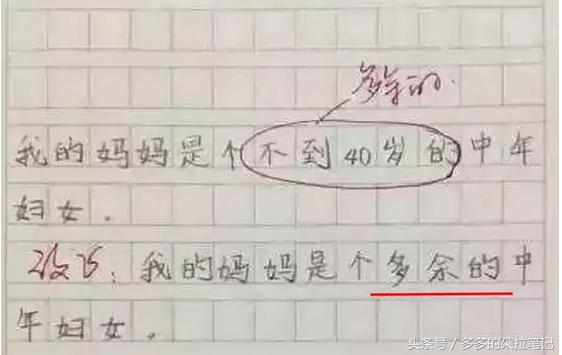 多余的.
我的妈妈是个不到40岁的中年
妇女.
改正:我的妈妈是个多余的中
年妇女.
头条号 / 多多的朵拉笔记